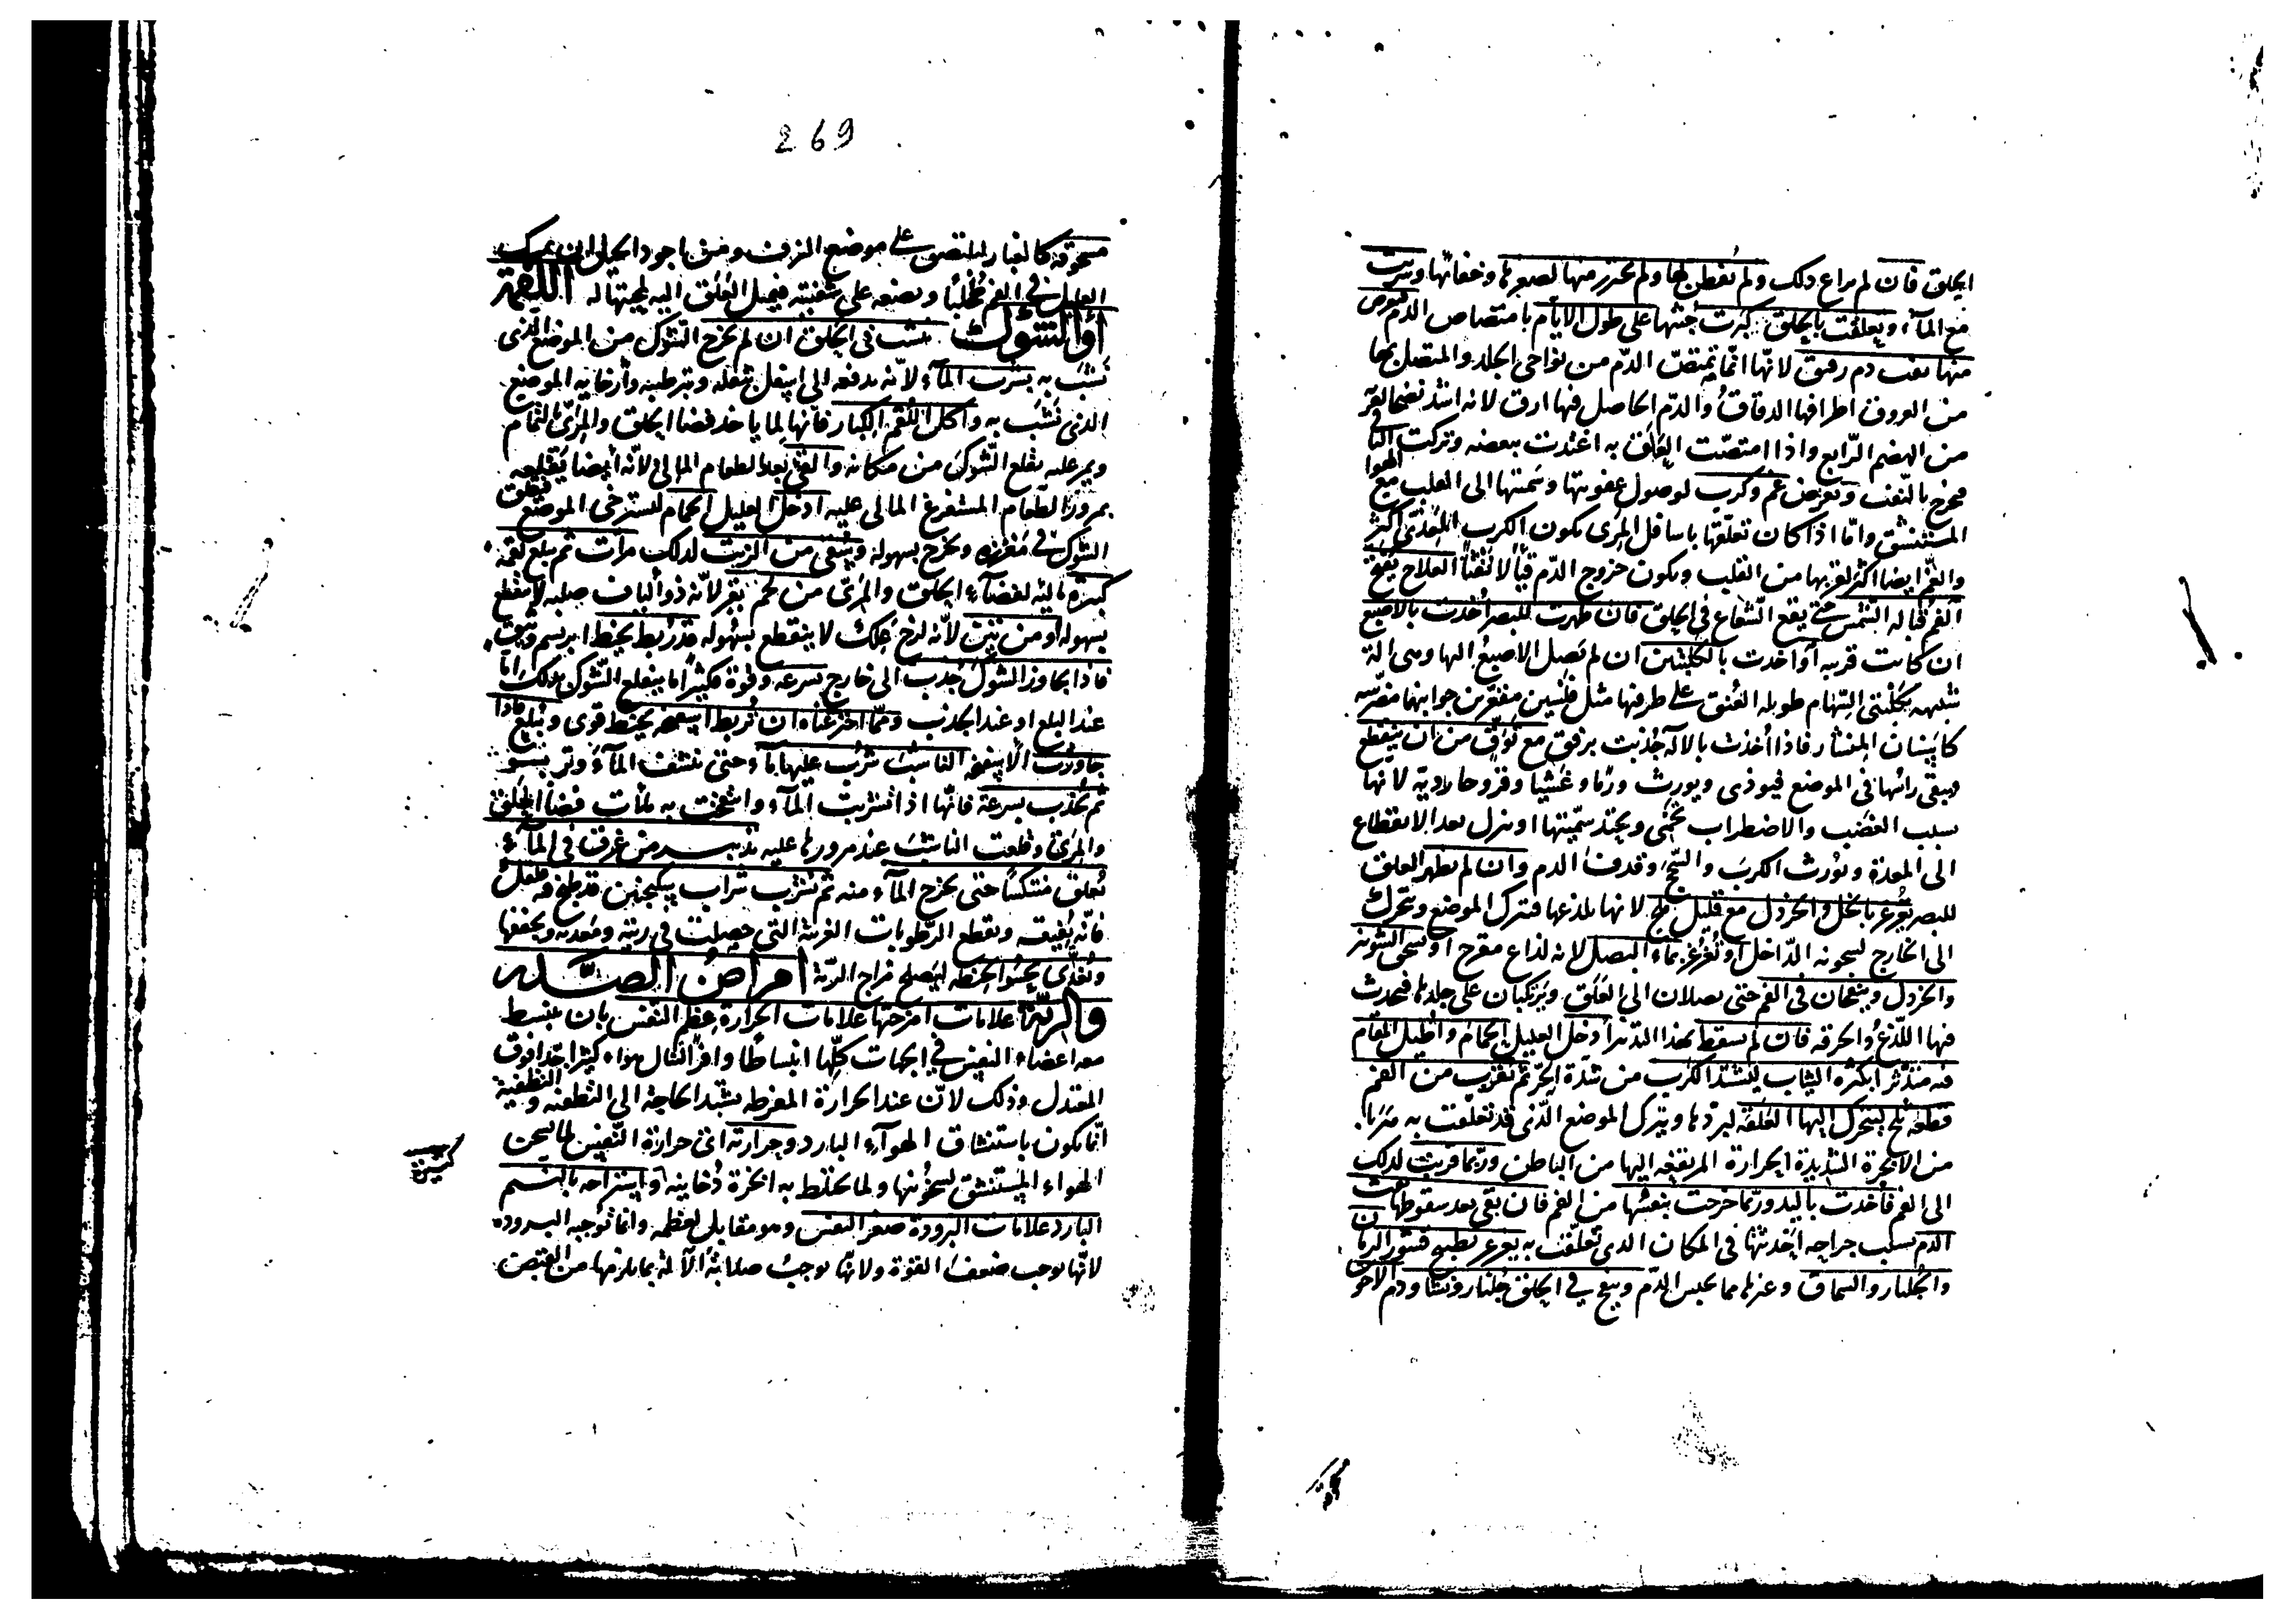 الحلق فان لم يراع ذلك ولم يفطن بها ولم يحترز منها لصغرها وخفائها وشربت
مع الماء وتعلقت بالحلق كبرت جثتها على طول الايام بامتصاص الدم
منها نفث دم رقيق لانها انما تمتص الدم من نواحى الجلد والمتصل بها
من العروق اطرافها الدقاق والدم الحاصل فيها ارق لانه اشد نضجا لقربه
من الهضم الرابع واذا امتصت العلق به اغتذت ببعضه وتركت الباقى
فيخرج بالنفث ويعرض غم وكرب لوصول عفونتها وسميتها الى القلب مع الهوا
المستنشق واما اذا كان تعلقها باسافل المرى يكون الكرب المعدى اكثر
والغم ايضا اكثر لقربها من القلب ويكون خروج الدم قيأ لا نفثا العلاج يفتح
الفم قبالة الشمس حتى يقع الشعاع فى الحلق فان ظهرت للبصر اخذت بالاصبع
ان كانت قريبة او اخذت بالكلبتين ان لم تصل الاصبع اليها وهى الة
شبيهة بكلبتى السهام طويلة العنق على طرفيها مثل فلسين مقعرين جوانبهما مضرسة
كاسنان المنشار فاذا اخذت بالالة جذبت برفق مع توق من ان ينقطع
فيبقى راسها فى الموضع فيوذى ويورث ورما وغشيا وقروحا ردية لانها
بسبب الغضب والاضطراب تحمى ويحتد سميتها او ينزل بعد الانقطاع
الى المعدة وتورث الكرب والسحج وقذف الدم وان لم يظهر العلق
للبصر يغرغر بالخل والخردل مع قليل ملح لانها يلذعها فتترك الموضع وتتحرك
الى الخارج لسخونة الداخل او تغرغر بماء البصل لانه لذاع مقرح او يسحق الشونيز
والخردل وينفخان فى الفم حتى يصلان الى العلق ويرتكبان على جلدها فيحدث
فيها اللذع والحرقة فان لم يسقط بهذا التدبير ادخل العليل الحمام واطيل المقام
فيه متدثرا بكثرة الثياب ليشتد الكرب من شدة الحر ثم تقرب من الفم
قطعة ثلج ليتحرك اليها العلقة لبردها ويترك الموضع الذى قد تعلقت به هربا
من الابخرة الشديدة الحرارة المرتفعة اليها من الباطن وربما قربت لذلك
الى الفم فاخذت باليد وربما خرجت بنفسها من الفم فان بقى بعد سقوطها نفث
الدم بسبب جراحة احدثتها فى المكان الذى تعلقت به يغرغر بطبيخ قشور الرمان
والجلنار والسماق وغيرها مما يحبس الدم وينفخ فى الحلق جلنار ونشا ودم الاخوين
269
مسحوقة كالغبار لتلتصق على موضع النزف ومن اجود الحيل ان يمسك
العليل فى الفم طحلبا ويضعه على شفتيه فيميل العلق اليه لمحبتها له اللقمة
او الشوك نشب فى الحلق ان لم يخرج الشوك من الموضع الذى
نشب به بشرب الماء لانه يدفعه الى اسفل بثقله وترطيبه وارخايه الموضع
الذى نشب به واكل اللقم الكبار فانها لما ياخذ فضا الحلق والمرى بالتمام
ويمر عليه يقلع الشوك من مكانه والقى بعد الطعام المالى لانه ايضا يقلعه
بمرور الطعام المستفرغ المالى عليه ادخل العليل الحمام ليسترخى الموضع فيقلق
الشوك فى مغرزه ويخرج بسهولة ويسقى من الزيت لذلك مرات ثم يبلع لقمة
كبيرة مالية لفضاء الحلق والمرى من لحم بقر لانه ذو الياف صلبة لا ينقطع
بسهولة او من تين لانه لزج علك لا ينقطع بسهولة قد ربط بخيط ابريسم
فاذا تجاوز الشوك جذب الى خارج بسرعة وقوة فكثيرا ما ينقلع الشوك بذلك اما
عند البلع او عند الجذب ومما اخترعناه ان تربط اسفنجة بخيط قوى وتبلع فاذا
جاوزت الاسفنجة الناشب شرب عليها ماء حتى تنشف الماء وتربو
ثم تجذب بسرعة فانها اذا تشربت الماء وانتفخت به ملأت فضا الحلق
والمرى وقلعت الناشب عند مرورها عليه تدبير من غرق فى الماء
يعلق منتكسا حتى يخرج الماء منه ثم يشرب شراب سكنجبين قد طبخ فيه فلفل
فانه يفيقه ويقطع الرطوبات الغريبة التى حصلت فى ريته ومعدته ويجففها
ويغذى بحسو الحنطة ليصلح مزاج الرية امراض الصدر
والرية علامات امزجتها علامات الحرارة عظم النفس بان ينبسط
معه اعضاء النفس فى الجهات كلها انبساطا وافرا لتنال هواء كثيرا جدا فوق
المعتدل وذلك لان عند الحرارة المفرطة يشتد الحاجة الى التطفية والتطفية
انما يكون باستنشاق الهواء البارد وحرارته اى حرارة النفس لما يسخن
الهواء المستنشق لسخونتها ولما يختلط به ابخرة دخانية واستراحة بالنسيم
البارد علامات البرودة صغر النفس وهو مقابل لعظمه وانما توجبه البرودة
لانها توجب ضعف القوة ولانها توجب صلابة الالة بما يلزمها من القبض